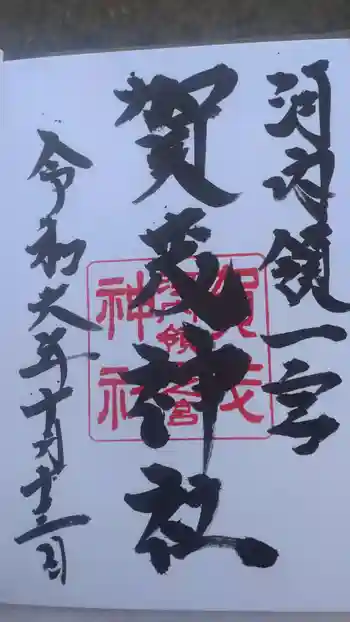 河内領一宮
賀茂神社
賀茂
神社
令和六年十月十三日